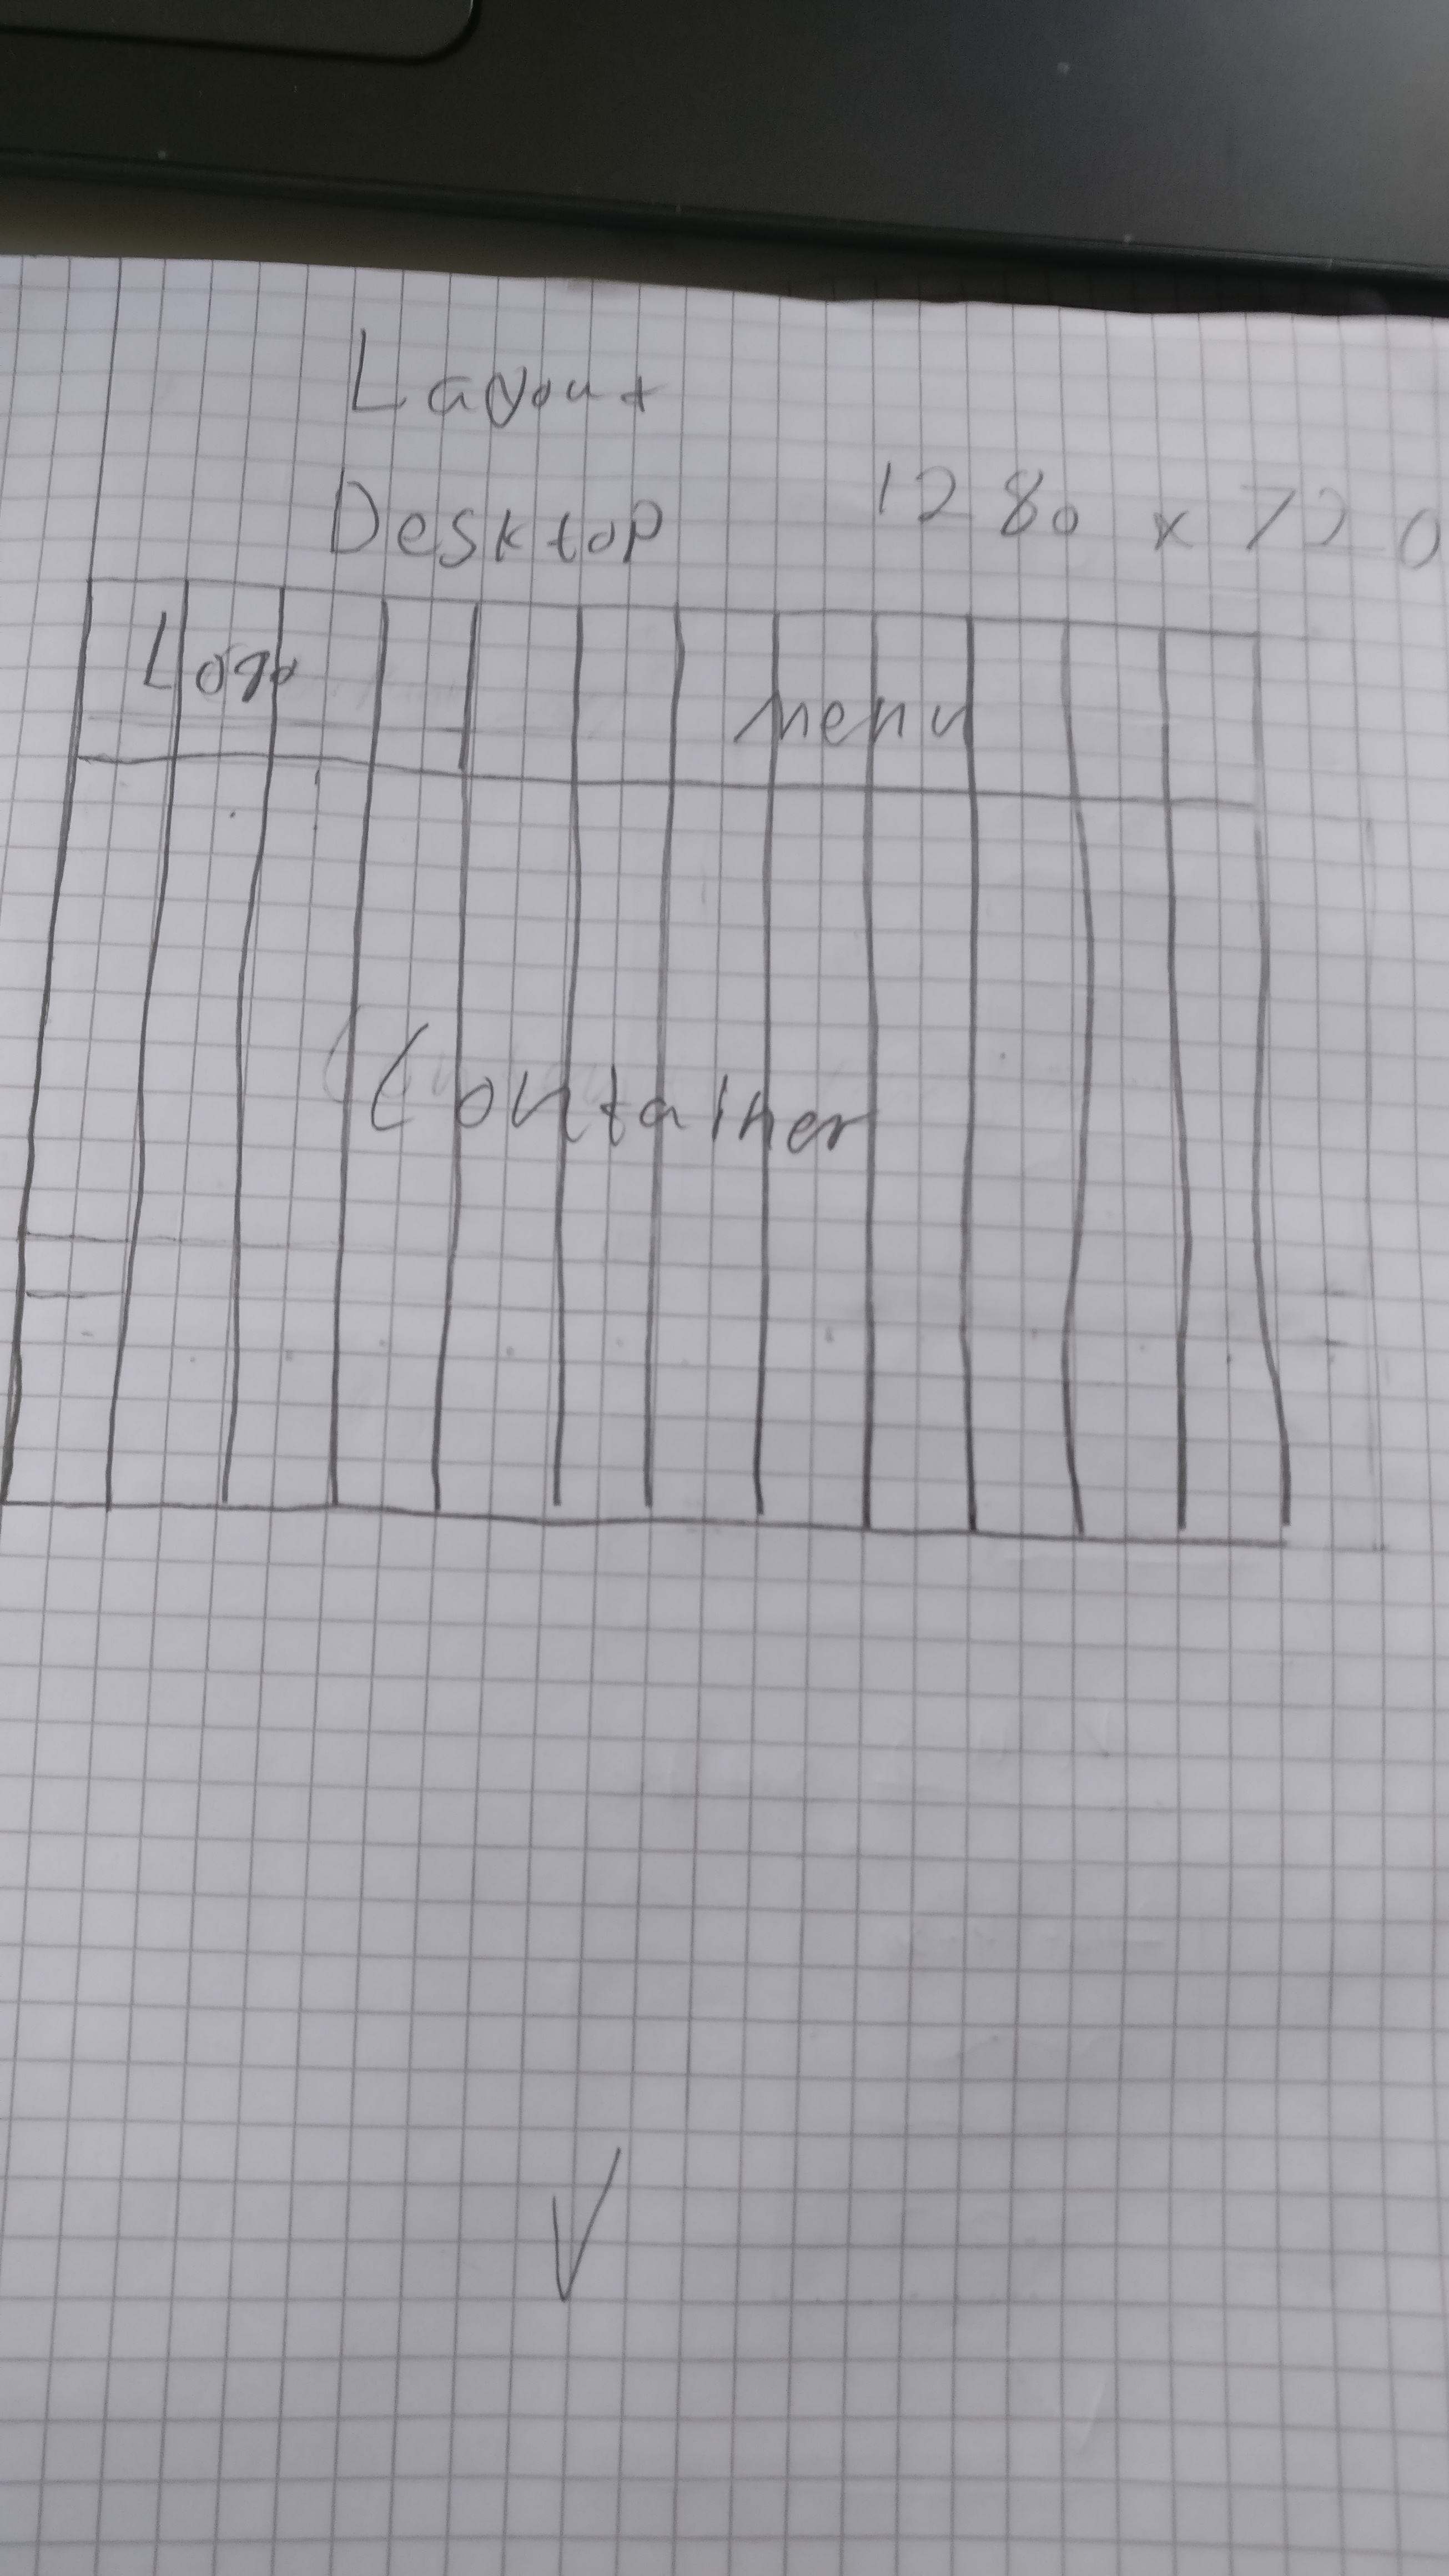 Layout
Desktop 1280 x 720
Logo
menu
Container